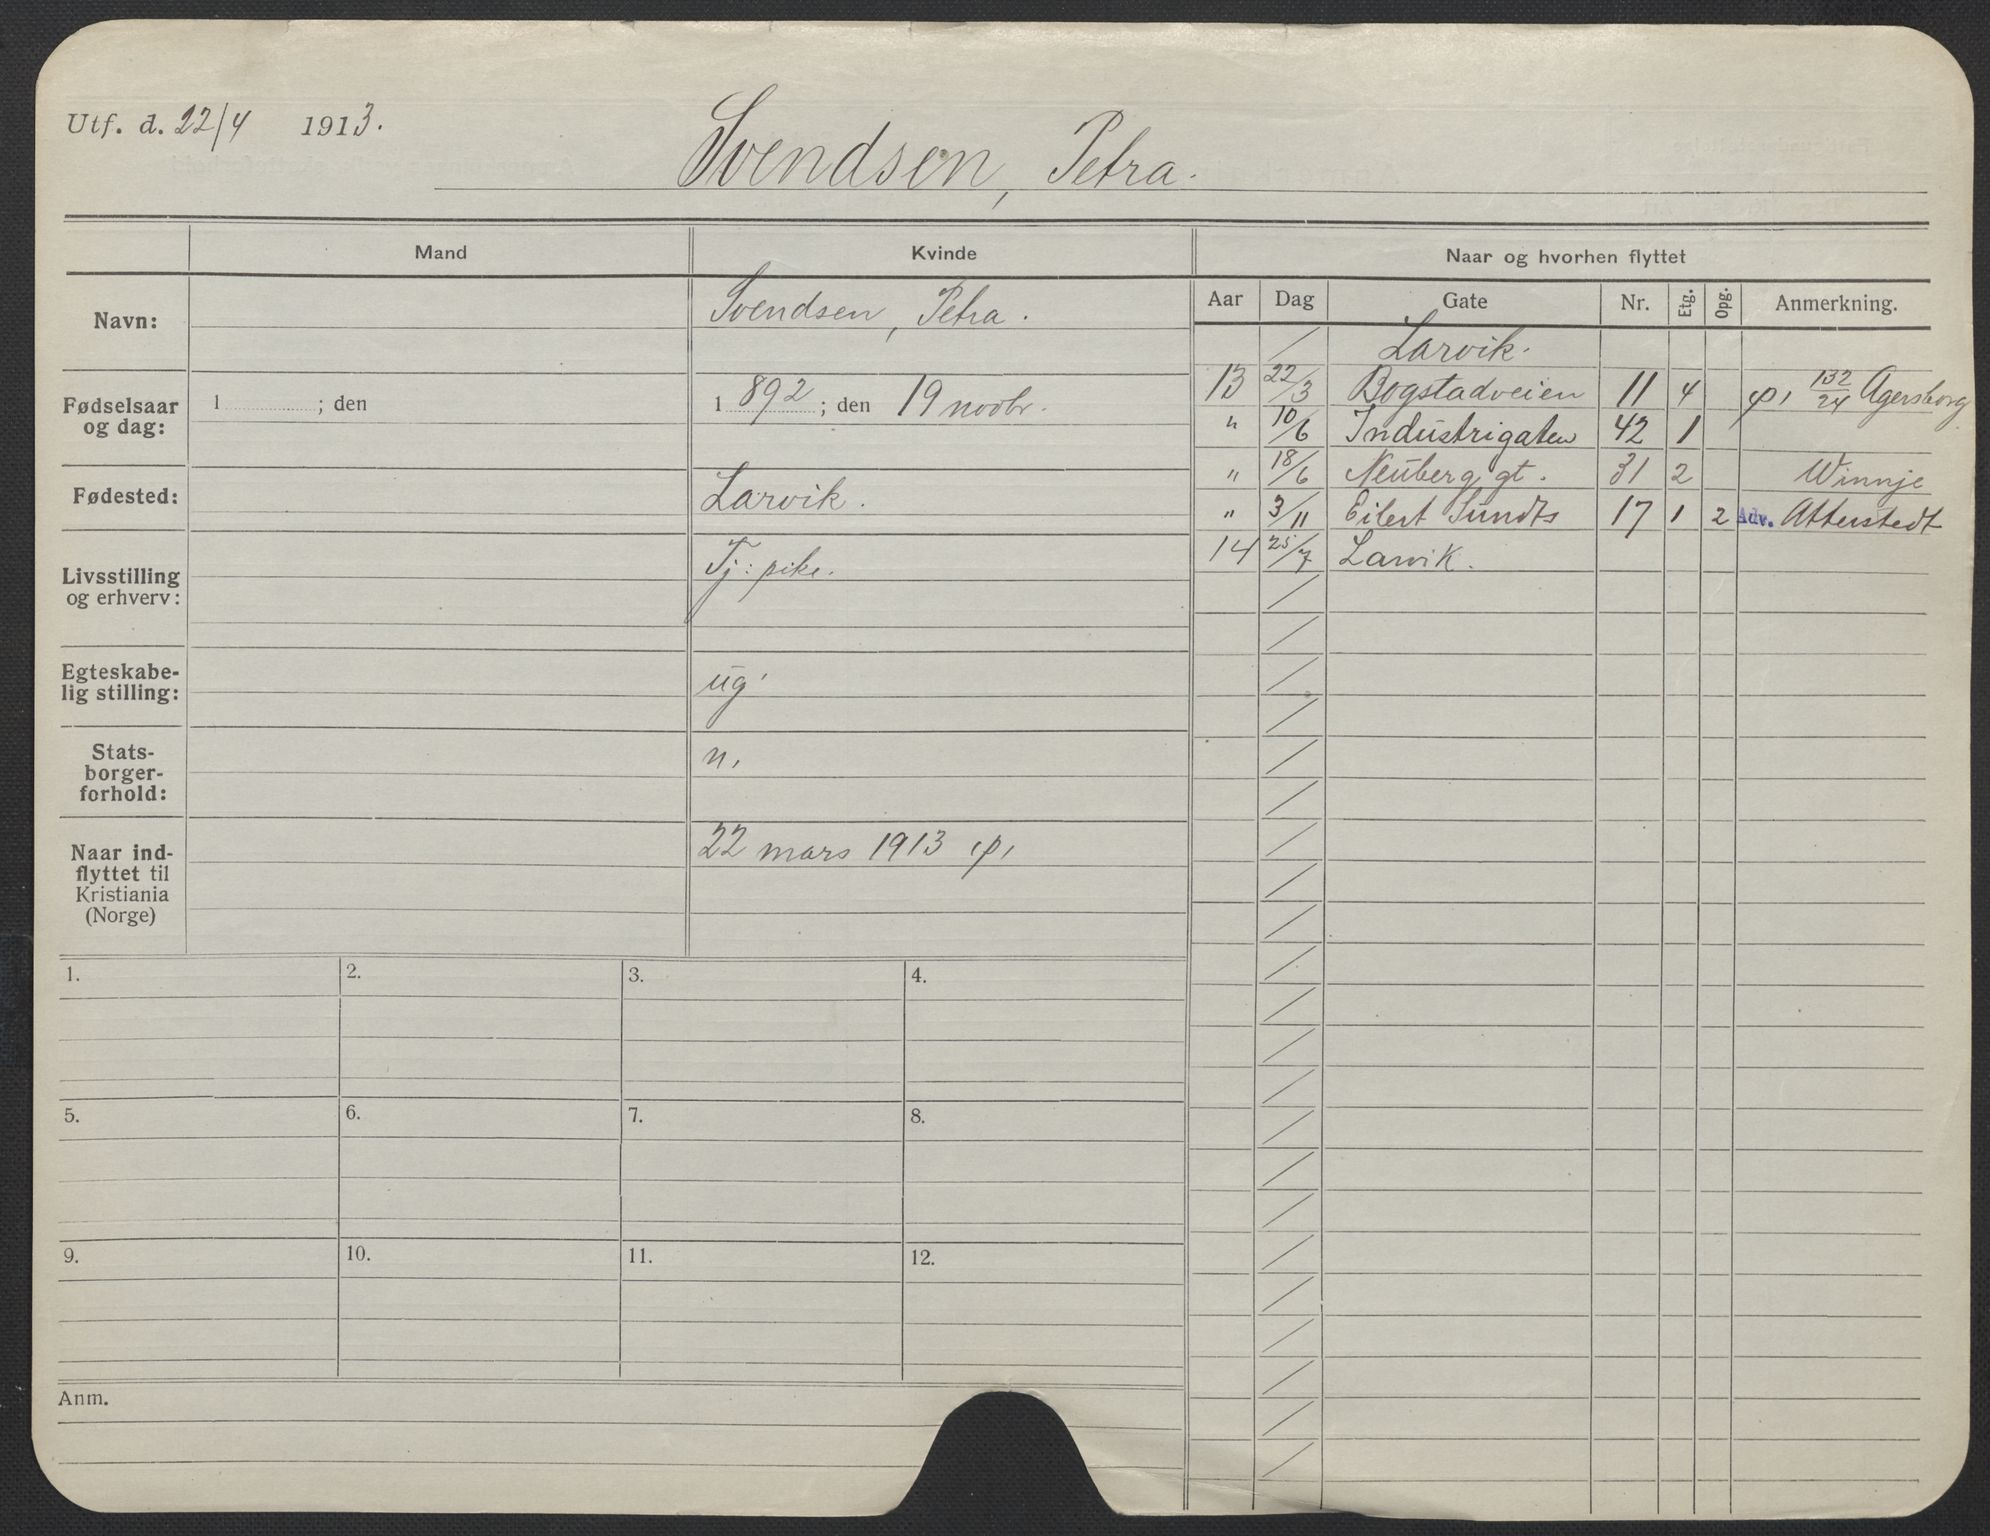 Utf. d. 22/4 1913.
Svendsen, Petra.
Mand
Kvinde
Naar og hvorhen flyttet
Navn:
Svendsen, Petra.
Fødselsaar og dag:
1 ; den
1 892 ; den 19 novbr.
Fødested:
Larvik.
Livsstilling og erhverv:
Tj: pike.
Egteskabe-
lig stilling:
ug
Stats-
borger-
forhold:
n.
Naar ind-
flyttet til
Kristiania
(Norge)
22 mars 1913
Aar Dag Gate Nr. Etg. Opg. Anmerkning.
/ Larvik.
13 22/3 Bogstadveien 11 4 132/24 Agersborg
" 10/6 Industrigaten 42 1
" 18/6 Neuberg gt. 31 2 Winnje
" 3/11 Eilert Sundts 17 1 2 Adv. Atterstedt
14 25/7 Larvik.
1. 2. 3. 4.
5. 6. 7. 8.
9. 10. 11. 12.
Anm.